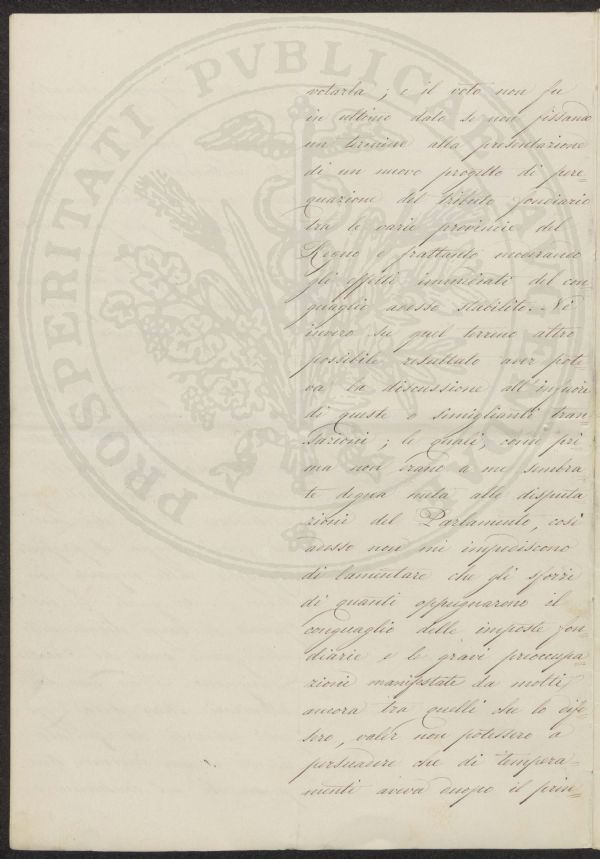 votarla; e il voto non fu
in ultimo dato se non fissando
un termine alla presentazione
di un nuovo progetto di pere=
quazione del tributo fondiario
tra le varie provincie del
Regno e frattanto moderando
gli effetti immediati del con=
guaglio adesso stabilito. Nè
invero su quel terreno altro
possibile resultato aver pote=
va la discussione all'infuori
di queste o simiglianti tran=
sazioni; le quali, come pri=
ma non erano a me sembra=
te degna meta alle disputa=
zioni del Parlamento, così
adesso non mi impediscono
di lamentare che gli sforzi
di quanti oppugnarono il
conguaglio delle imposte fon=
diarie e le gravi preoccupa=
zioni manifestate da molti
ancora tra quelli che lo dife=
sero, valer non potessero a
persuadere che di tempera=
menti aveva duopo il prin=
PROSPERITATI PVBLICAE